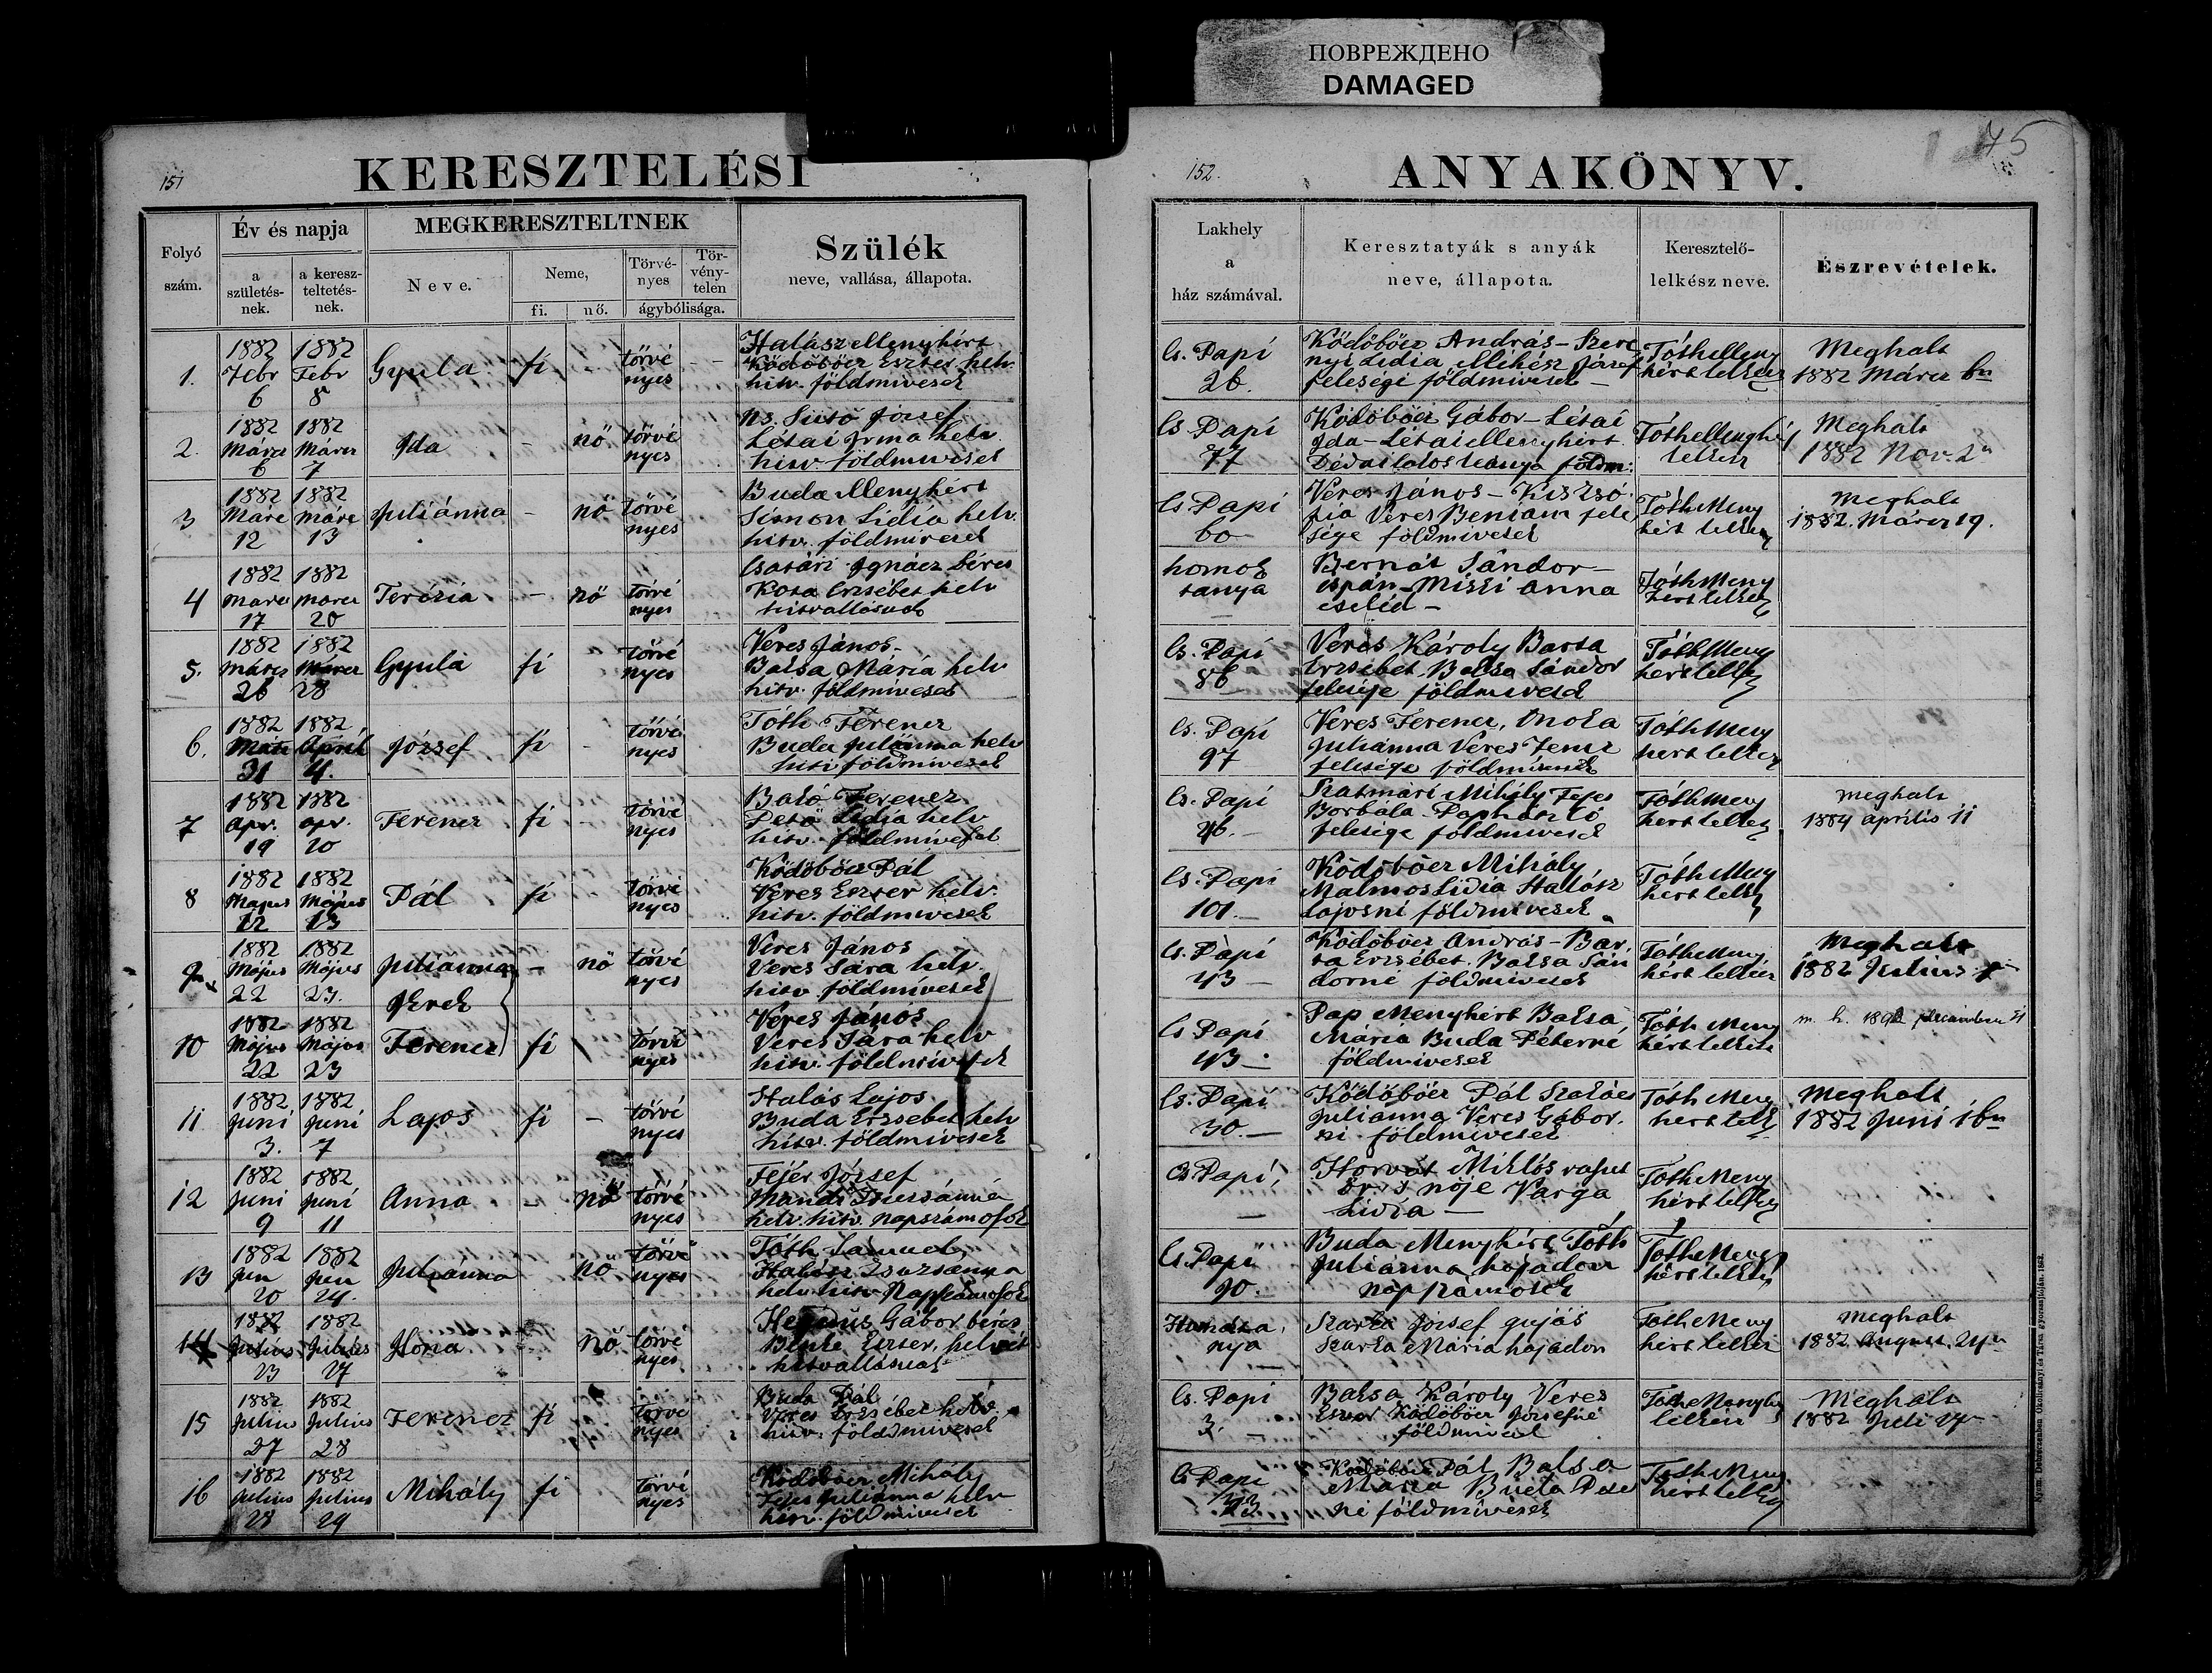 ПОВРЕЖДЕНО
DAMAGED
151
KERESZTELÉSI
Folyó
szám.
Év és napja
a
születés-
nek.
a keresz-
teltetés-
nek.
MEGKERESZTELTNEK
Neve.
Neme,
fi.
nő.
Törvé-
nyes
Tör-
vény-
telen
ágybólisága.
Szülék
neve, vallása, állapota.
1.
1882
Febr
6
1882
Febr
8
Gyula
fi
törvé
nyes
Halász Menyhért
Ködöböcz Eszter helv
hitv. földmivesek
2.
1882
Márcz
6
1882
Márcz
7
Ida
-
nő
törvé
nyes
Ns. Sütő József
Létai Irma helv
hitv földmivesek
3
1882
Márc
12
1882
Márc
13
Juliánna
-
nő
törvé
nyes
Buda Menyhért
Simon Lidia helv.
hitv. földmivesek
4
1882
Marcz
17
1882
Marcz
20
Terézia
-
nő
törvé
nyes
Csatári Ignácz béres
Kota Erzsébet helv
hitvallásuak
5.
1882
Márcz
26
1882
Márcz
28
Gyula
fi
törvé
nyes
Veres János
Balsa Mária helv
hitv. földmivesek
6.
1882
Márc
31
1882
Április
4.
József
fi
-
törvé
nyes
Tóth Ferencz
Buda Juliánna helv
hitv földmivesek
7
1882
Apr.
19
1882
apr.
20
Ferencz
fi
-
törvé
nyes
Bakó Ferencz
Pető Lidia helv
hitv. földmivesek
8
1882
Majus
22
1882
Május
23
Pál
fi
törvé
nyes
Ködöböcz Pál
Veres Eszter helv.
hitv. földmivesek
9
1882
Május
22
1882
Május
23.
Juliánna
Ikrek
-
nő
törvé
nyes
Veres János
Veres Sára helv.
hitv. földmivesek
10
1882
Május
22
1882
Május
23
Ferencz
fi
törvé
nyes
Veres János
Veres Sára helv
hitv. földmivesek
11
1882
Juni
3.
1882
Juni
7
Lajos
fi
-
törvé
nyes
Halás Lajos
Buda Erzsebet helv
hitv. földmivesek
12
1882
Juni
9
1882
Juni
11
Anna
-
nő
törvé
nyes
Fejér József
Mandi Zsuzsánna
helv. hitv. napszámosok
13
1882
Jun
20
1882
Jun
24.
Juliánna
nő
törvé
nyes
Tóth Samuel
Halász Zsuzsanna
helv. hitv. Napszámosok
14
1882
Julius
23
1882
Julius
27
Ilona
nő
törvé
nyes
Hegedüs Gábor béres
Eszter, helvét
hitvallásuak
15
1882
Julius
27
1882
Julius
28
Ferencz
fi
törvé
nyes
Buda Pál
Veres Erzsébet helv.
hitv. földmivesek
16
1882
Julius
28
1882
Julius
29
Mihály
fi
törvé
nyes
Ködöböcz Mihály
Fejes Juliánna helv
hitv. földmivesek
152.
ANYAKÖNYV.
75
Lakhely
a
ház számával.
Keresztatyák s anyák
neve, állapota.
Keresztelő-
lelkész neve.
Észrevételek.
Cs. Papi
26.
Ködöböcz András - Szere
nyi Lidia Mihész József
felesége földmivesek -
Tóth Meny
hért lelkész
Meghalt
1882 Márcz 6n
Cs. Papi
77
Ködöböcz Gábor - Létai
Ida - Létai Menyhért
leánya földm:
Tóth Menyhé
lelkész
Meghalt
1882 Nov. 2n
Cs. Papi
60
Veres János - Kis Zsó
fia Veres Beniam fele
sége földmivesek
Tóth Meny
hért lelkész
Meghalt
1882. Márcz 19.
homok
tanya
Bernát Sándor -
ispán - Miski Anna
cseléd -
Tóth Meny
hért lelkész
Cs. Papi
86
Veres Károly Barta
Erzsébet Balsa Sándor
felesége földmivesek
Tóth Meny
hért lelkész
Cs. Papi
97
Veres Ferencz,
Julianna Veres Ferencz
felesége földmivesek
Tóth Meny
hért lelkész
Cs. Papi
46.
Szatmári Mihály Fejes
Borbála
felesége földmivesek
Tóth Meny
hért lelkész
meghalt
1884 április 11
Cs. Papi
101.
Ködöböcz Mihály
Malmos Lidia Halász
Lajosné földmivesek
Tóth Meny
hért lelkész
Cs. Papi
43
Ködöböcz András - Bar
ta Erzsébet. Balsa Sán
dorné földmivesek
Tóth Meny
hért lelkész
Meghalt
1882 Julius
Cs Papi
43
Pap Menyhért Balsa
Mária Buda Péterné
földmivesek
Tóth Meny
hért lelkész
Cs. Papi
30.
Ködöböcz Pál Szakács
Juliánna Veres Gábor.
né földmivesek
Tóth Meny
hért lelk
Meghalt
1882 Juni 16n
Cs. Papi,
Horvát Miklós vasut
őr s nője Varga
Lidia -
Tóth Meny
hért lelkész
Cs. Papi
90.
Buda Menyhért Tóth
Juliánna hajadon
napszámosok
Tóth Meny
hért lelkész
nya
Szarka József gujás
Szarka Mária hajadon
Tóth Meny
hért lelkész
meghalt
1882 August. 24n
Cs. Papi
3.
Balsa Károly Veres
Eszter Ködöböcz Józsefné
földmivesek
Tóth Menyhé
lelkész
Meghalt
1882
Cs Papi
Ködöböcz Pál Balsa
Mária Buda Péter
né földmivesek
Tóth Meny
hért lelkész
Nyom. Debreczenben Ökröskényi és Társa gyorssajtóján. 1882.